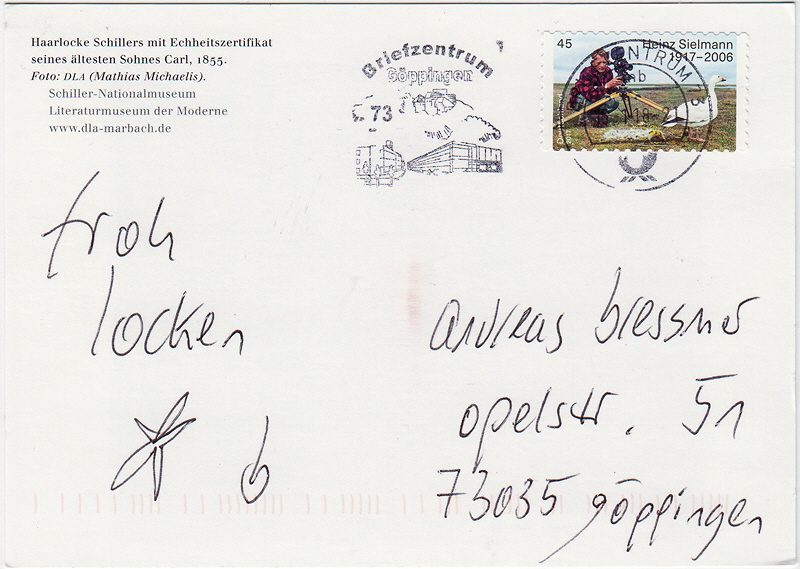 Haarlocke Schillers mit Echheitszertifikat
seines ältesten Sohnes Carl, 1855.
Foto: DLA (Mathias Michaelis).
Schiller-Nationalmuseum
Literaturmuseum der Moderne
www.dla-marbach.de
Briefzentrum
Göppingen
73
45
Heinz Sielmann
1917–2006
ZENTRUM
mb
froh
locken
andreas bressmer
opelstr. 51
73035 göppingen